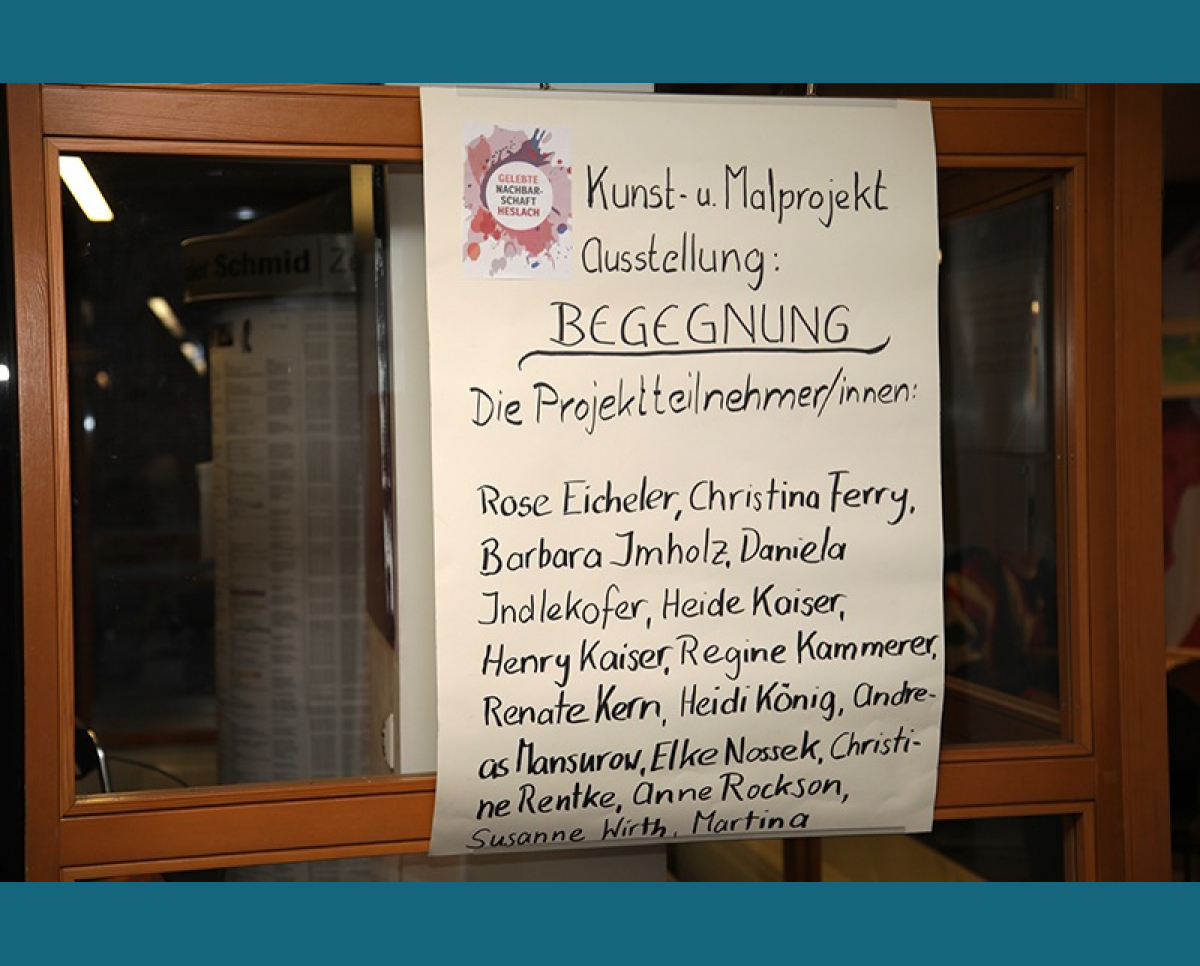 GELEBTE
NACHBAR-
SCHAFT
HESLACH
Kunst- u. Malprojekt
Ausstellung:
BEGEGNUNG
Die Projektteilnehmer/innen:
Rose Eicheler, Christina Ferry,
Barbara Imholz, Daniela
Indlekofer, Heide Kaiser,
Henry Kaiser, Regine Kammerer,
Renate Kern, Heidi König, Andre-
as Mansurow, Elke Nossek, Christi-
ne Rentke, Anne Rockson,
Susanne Wirth, Martina
Schmid